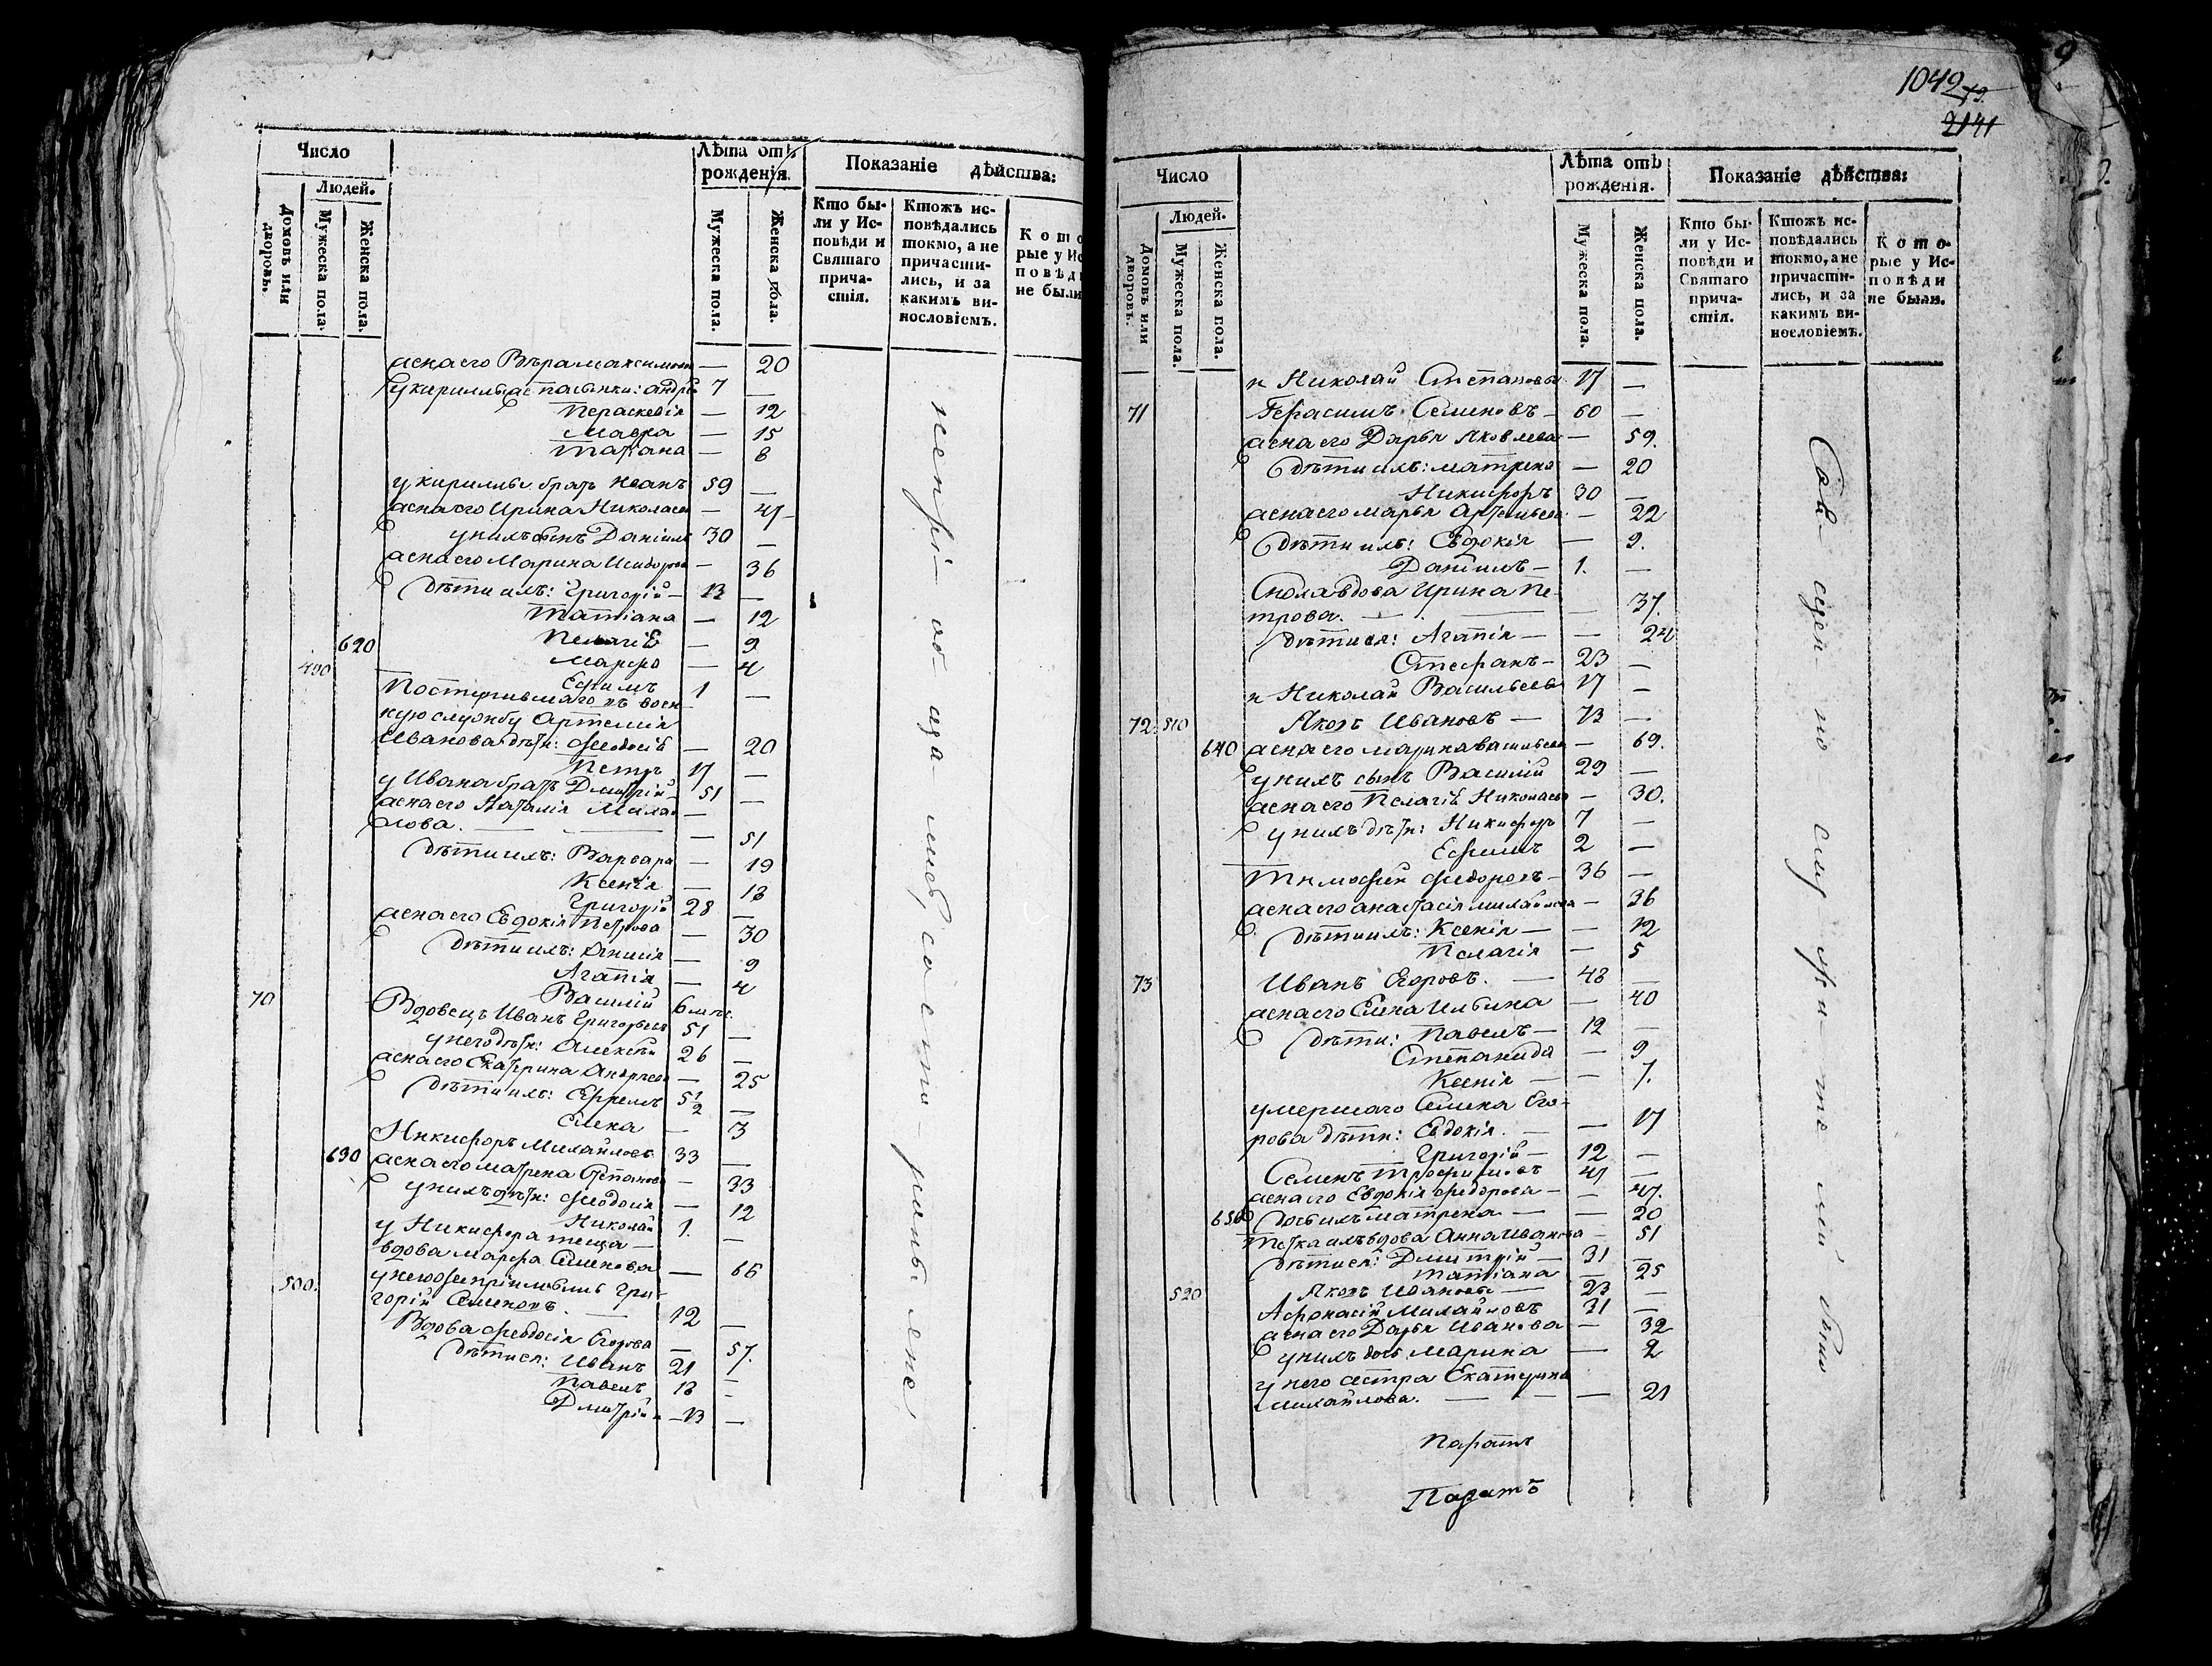 Число
Людей.
Домовъ или дворовъ.
Мужеска пола.
Женска пола.
Лѣта отъ рожденія.
Мужеска пола.
Женска пола.
Показаніе дѣйства:
Кто бы-
ли у Ис-
повѣди и
Святаго
прича-
стія.
Ктожъ ис-
повѣдались
токмо, а не
причасти-
лись, и за
какимъ ви-
нословіемъ.
Кото
рые у Ис
повѣд
не были
20
7 —
Пераскевія — 12
Мавра — 15
Татіана — 8
у кириллы братъ Иванъ 59 —
жена его Ирина Николаева — 41
у нихъ сынъ Даніилъ 30 —
жена его Марина Исидорова — 36
дѣти ихъ: Григорій — 13 —
Татіана — 12
620 Пелагіѣ — 9
490 Марфа — 4
Ефимъ 1 —
Поступившаго въ воен
ную службу Артемія
Иванова дѣти: Феодосіѣ — 20
Петръ 17 —
у Ивана братъ Дмитрій — 51 —
жена его Наталія Михай —
лова. — — 51
дѣти ихъ: Варвара — 19
Ксенія — 18
Григорій 28 —
жена его Евдокія Петрова — 30
дѣти ихъ: — 9
Агапія — 4
Василій 6 мѣс.
70 Вдовецъ Иванъ Григорьевъ 51 —
у него дѣти: Алексѣй 26 —
жена его Екатерина Андреева — 25
дѣти ихъ: Ефремъ 5½ —
Елена — 3
Никифоръ Михайловъ 33 —
630 жена его Матрена Степанова — 33
у нихъ дѣти: Феодосія — 12
Николай 1. —
у Никифора теща —
вдова Марфа Семенова — 66
500. Гри-
горій Семеновъ. — 12 —
Вдова Феодосія Егорова — 57.
дѣти ея: Иванъ 21 —
Павелъ 18 —
Дмитрій — 13 —
1042
73.
2141
Число
Людей.
Домовъ или дворовъ.
Мужеска пола.
Женска пола.
Лѣта отъ рожденія.
Мужеска пола.
Женска пола.
Показаніе дѣйства:
Кто бы-
ли у Ис-
повѣди и
Святаго
прича-
стія.
Ктожъ ис-
повѣдались
токмо, а не
причасти-
лись, и за
какимъ ви-
нословіемъ.
Кото-
рые у Ис-
повѣди
не были.
и Николай Степановы 17 —
71 Герасимъ Семеновъ — 60 —
жена его Дарья Яковлева — 59.
дѣти ихъ: Матрена — 20
Никифоръ 30 —
жена его Марья Артемьева — 22
дѣти ихъ: Евдокія — 9.
Даніилъ — 1. —
Сноха вдова Ирина Пе-
трова. — — 37.
дѣти ея: Агапія — — 24
Стефанъ — 23 —
и Николай Васильевы 17 —
72. 510 Яковъ Ивановъ — 73 —
640 жена его Марина Васильева — 69.
у нихъ сынъ Василій 29 —
жена его Пелагіѣ Николаева — 30.
у нихъ дѣти: Никифоръ 7 —
Ефимъ 2 —
Тимофей Федоровъ — 36 —
жена его Анастасія Михайлова — 36
дѣти ихъ: Ксенія — — 12
Пелагія — 5
73 Иванъ Егоровъ. — 48 —
жена его Елена Ильина — 40
дѣти: Павелъ — 12 —
Степанида — 9
Ксенія — — 7.
умершаго Семена Его-
рова дѣти: Евдокія. — — 17
Григорій — 12 —
Семенъ Трофимовъ 41 —
жена его Евдокія Федорова — — 47.
650 дочь ихъ Матрена — — 20
Тетка ихъ вдова Анна Иванова — 51
дѣти ея: Дмитрій — 31 —
Татіана — 25
520 Яковъ Ивановы — 23 —
Афонасій Михайловъ 31 —
жена его Дарья Иванова — 32
у нихъ дочь Марина — 2
у него сестра Екатерина
Михайлова. — — — 21
Паратъ
Паратъ